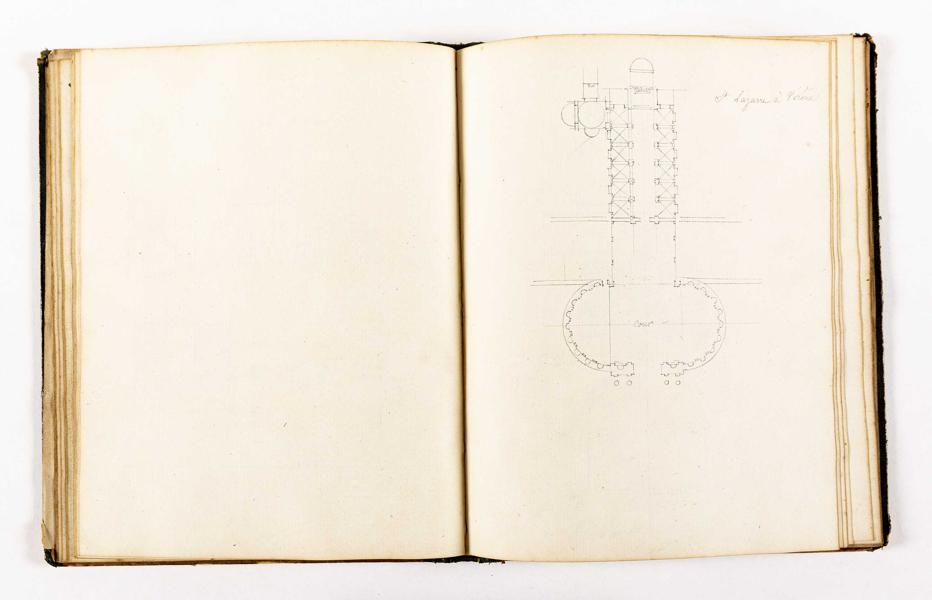 St Lazare à Vérone
Cour